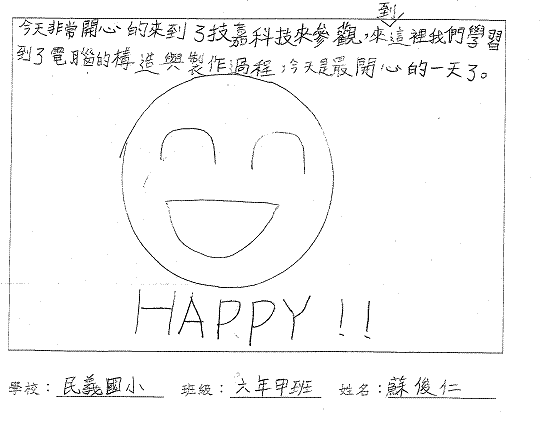 今天非常開心的來到了技嘉科技來參觀,來到這裡我們學習
到了電腦的構造與製作過程,今天是最開心的一天了。
HAPPY!!
學校:民義國小 班級:六年甲班 姓名:蘇俊仁